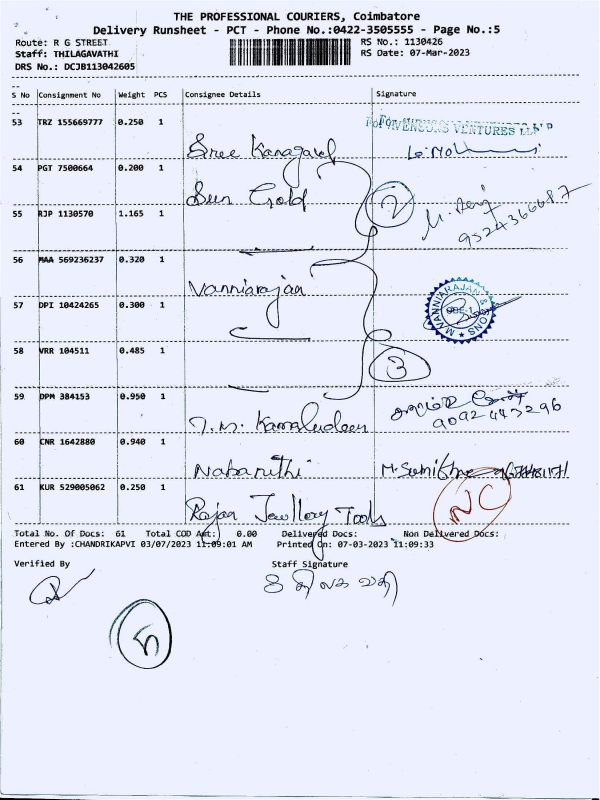 THE PROFESSIONAL COURIERS, Coimbatore
Delivery Runsheet - PCT - Phone No.:0422-3505555 - Page No.:5
Route: R G STREET RS No.: 1130426
Staff: THILAGAVATHI RS Date: 07-Mar-2023
DRS No.: DCJB113042605
S No Consignment No Weight PCS Consignee Details Signature
53 TRZ 155669777 0.250 1 Sree
VENTURES LLP
54 PGT 7500664 0.200 1 Sun Gold 2
55 RJP 1130570 1.165 1
9524366687
56 MAA 569236237 0.320 1 Vanniarajan
57 DPI 10424265 0.300 1
M.VANNIARAJAN & SONS
CBE-1
58 VRR 104511 0.485 1 3
59 DPM 384153 0.950 1 T.M. Kamaludeen 9092443296
60 CNR 1642880 0.940 1
61 KUR 529005062 0.250 1 Rajan Jewllery Tools NC
Total No. Of Docs: 61 Total COD Amt: 0.00 Delivered Docs: Non Delivered Docs:
Entered By :CHANDRIKAPVI 03/07/2023 11:09:01 AM Printed On: 07-03-2023 11:09:33
Verified By Staff Signature